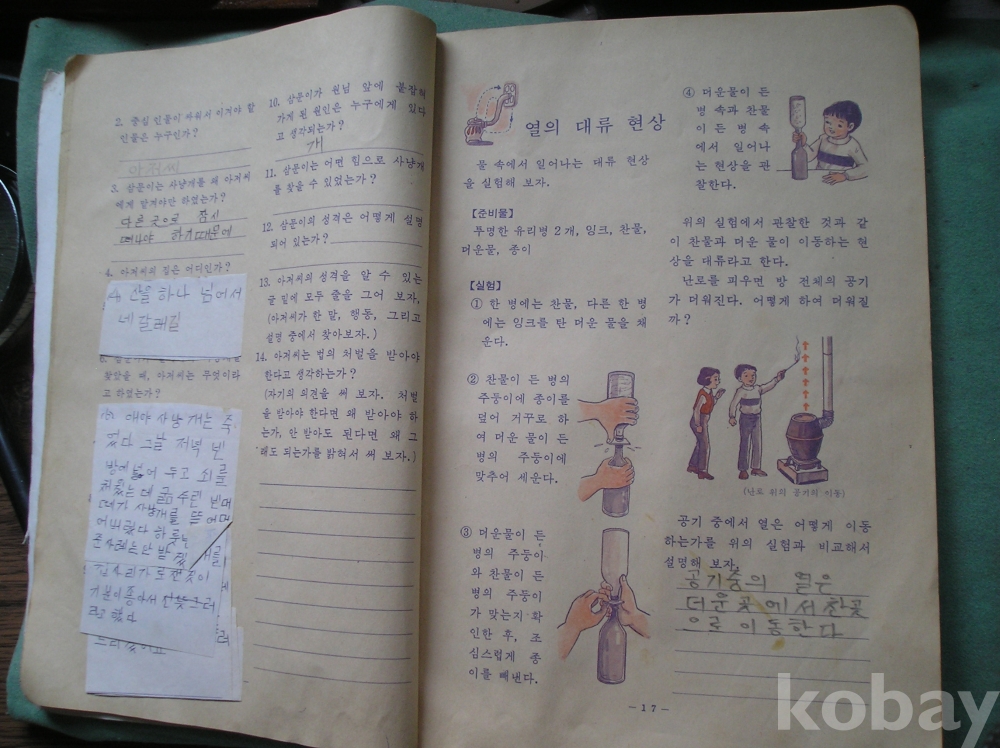 2. 중심 인물이 싸워서 이겨야 할
인물은 누구인가?
아저씨
3. 삼문이는 사냥개를 왜 아저씨
에게 맡겨야만 하였는가?
다른 곳으로 잠시
떠나야 하기때문에
4. 아저씨의 집은 어디인가?
4. 산을 하나 넘어서
네 갈래길
찾았을 때, 아저씨는 무엇이라
고 하였는가?
애야 사냥개는 죽
었다 그날 저녁 빈
방에 넣어 두고 쇠를
채웠는데 굶주린 빈대
떼가 사냥개를 뜯어먹
어버렸다
10. 삼문이가 원님 앞에 붙잡혀
가게 된 원인은 누구에게 있다
고 생각되는가?
개
11. 삼문이는 어떤 힘으로 사냥개
를 찾을 수 있었는가?
12. 삼문이의 성격은 어떻게 설명
되어 있는가?
13. 아저씨의 성격을 알 수 있는
글 밑에 모두 줄을 그어 보자.
(아저씨가 한 말, 행동, 그리고
설명 중에서 찾아보자.)
14. 아저씨는 법의 처벌을 받아야
한다고 생각하는가?
(자기의 의견을 써 보자. 처벌
을 받아야 한다면 왜 받아야 하
는가, 안 받아도 된다면 왜 그
래도 되는가를 밝혀서 써 보자.)
열의 대류 현상
물 속에서 일어나는 대류 현상
을 실험해 보자.
【준비물】
투명한 유리병 2개, 잉크, 찬물,
더운물, 종이
【실험】
① 한 병에는 찬물, 다른 한 병
에는 잉크를 탄 더운 물을 채
운다.
② 찬물이 든 병의
주둥이에 종이를
덮어 거꾸로 하
여 더운 물이 든
병의 주둥이에
맞추어 세운다.
③ 더운물이 든
병의 주둥이
와 찬물이 든
병의 주둥이
가 맞는지 확
인한 후, 조
심스럽게 종
이를 빼낸다.
④ 더운물이 든
병 속과 찬물
이 든 병 속
에서 일어나
는 현상을 관
찰한다.
위의 실험에서 관찰한 것과 같
이 찬물과 더운 물이 이동하는 현
상을 대류라고 한다.
난로를 피우면 방 전체의 공기
가 더워진다. 어떻게 하여 더워질
까?
(난로 위의 공기의 이동)
공기 중에서 열은 어떻게 이동
하는가를 위의 실험과 비교해서
설명해 보자.
공기중의 열은
더운곳에서 찬곳
으로 이동한다
-17-
kobay